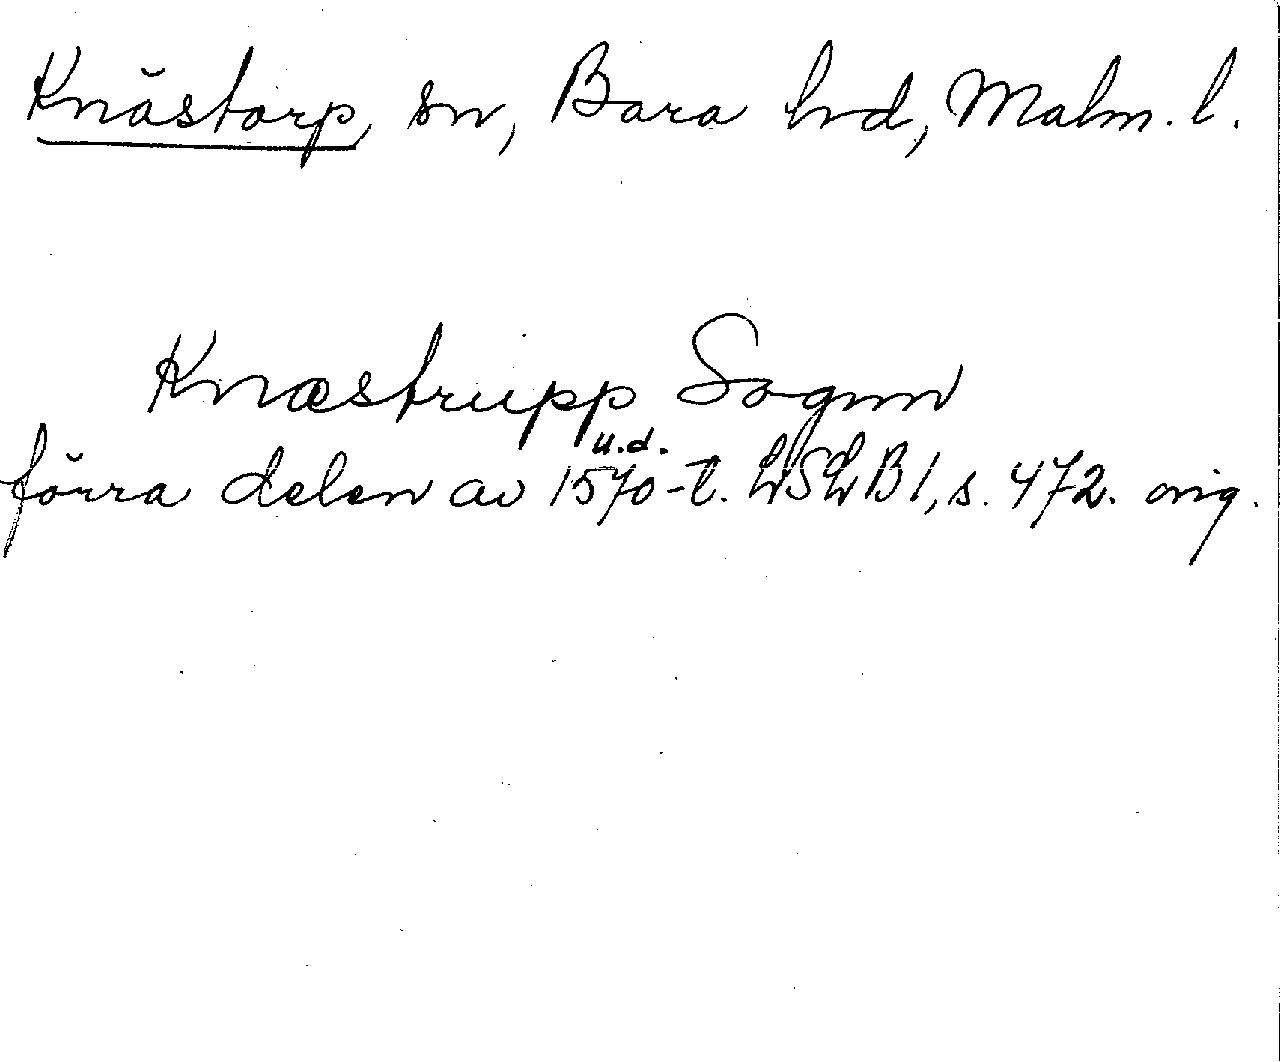 Knästorp, sn, Bara hd, Malm. l.
Knæstrupp Sognn
u.d.
förra delen av 1570-t. LSLB 1, s. 472. orig.